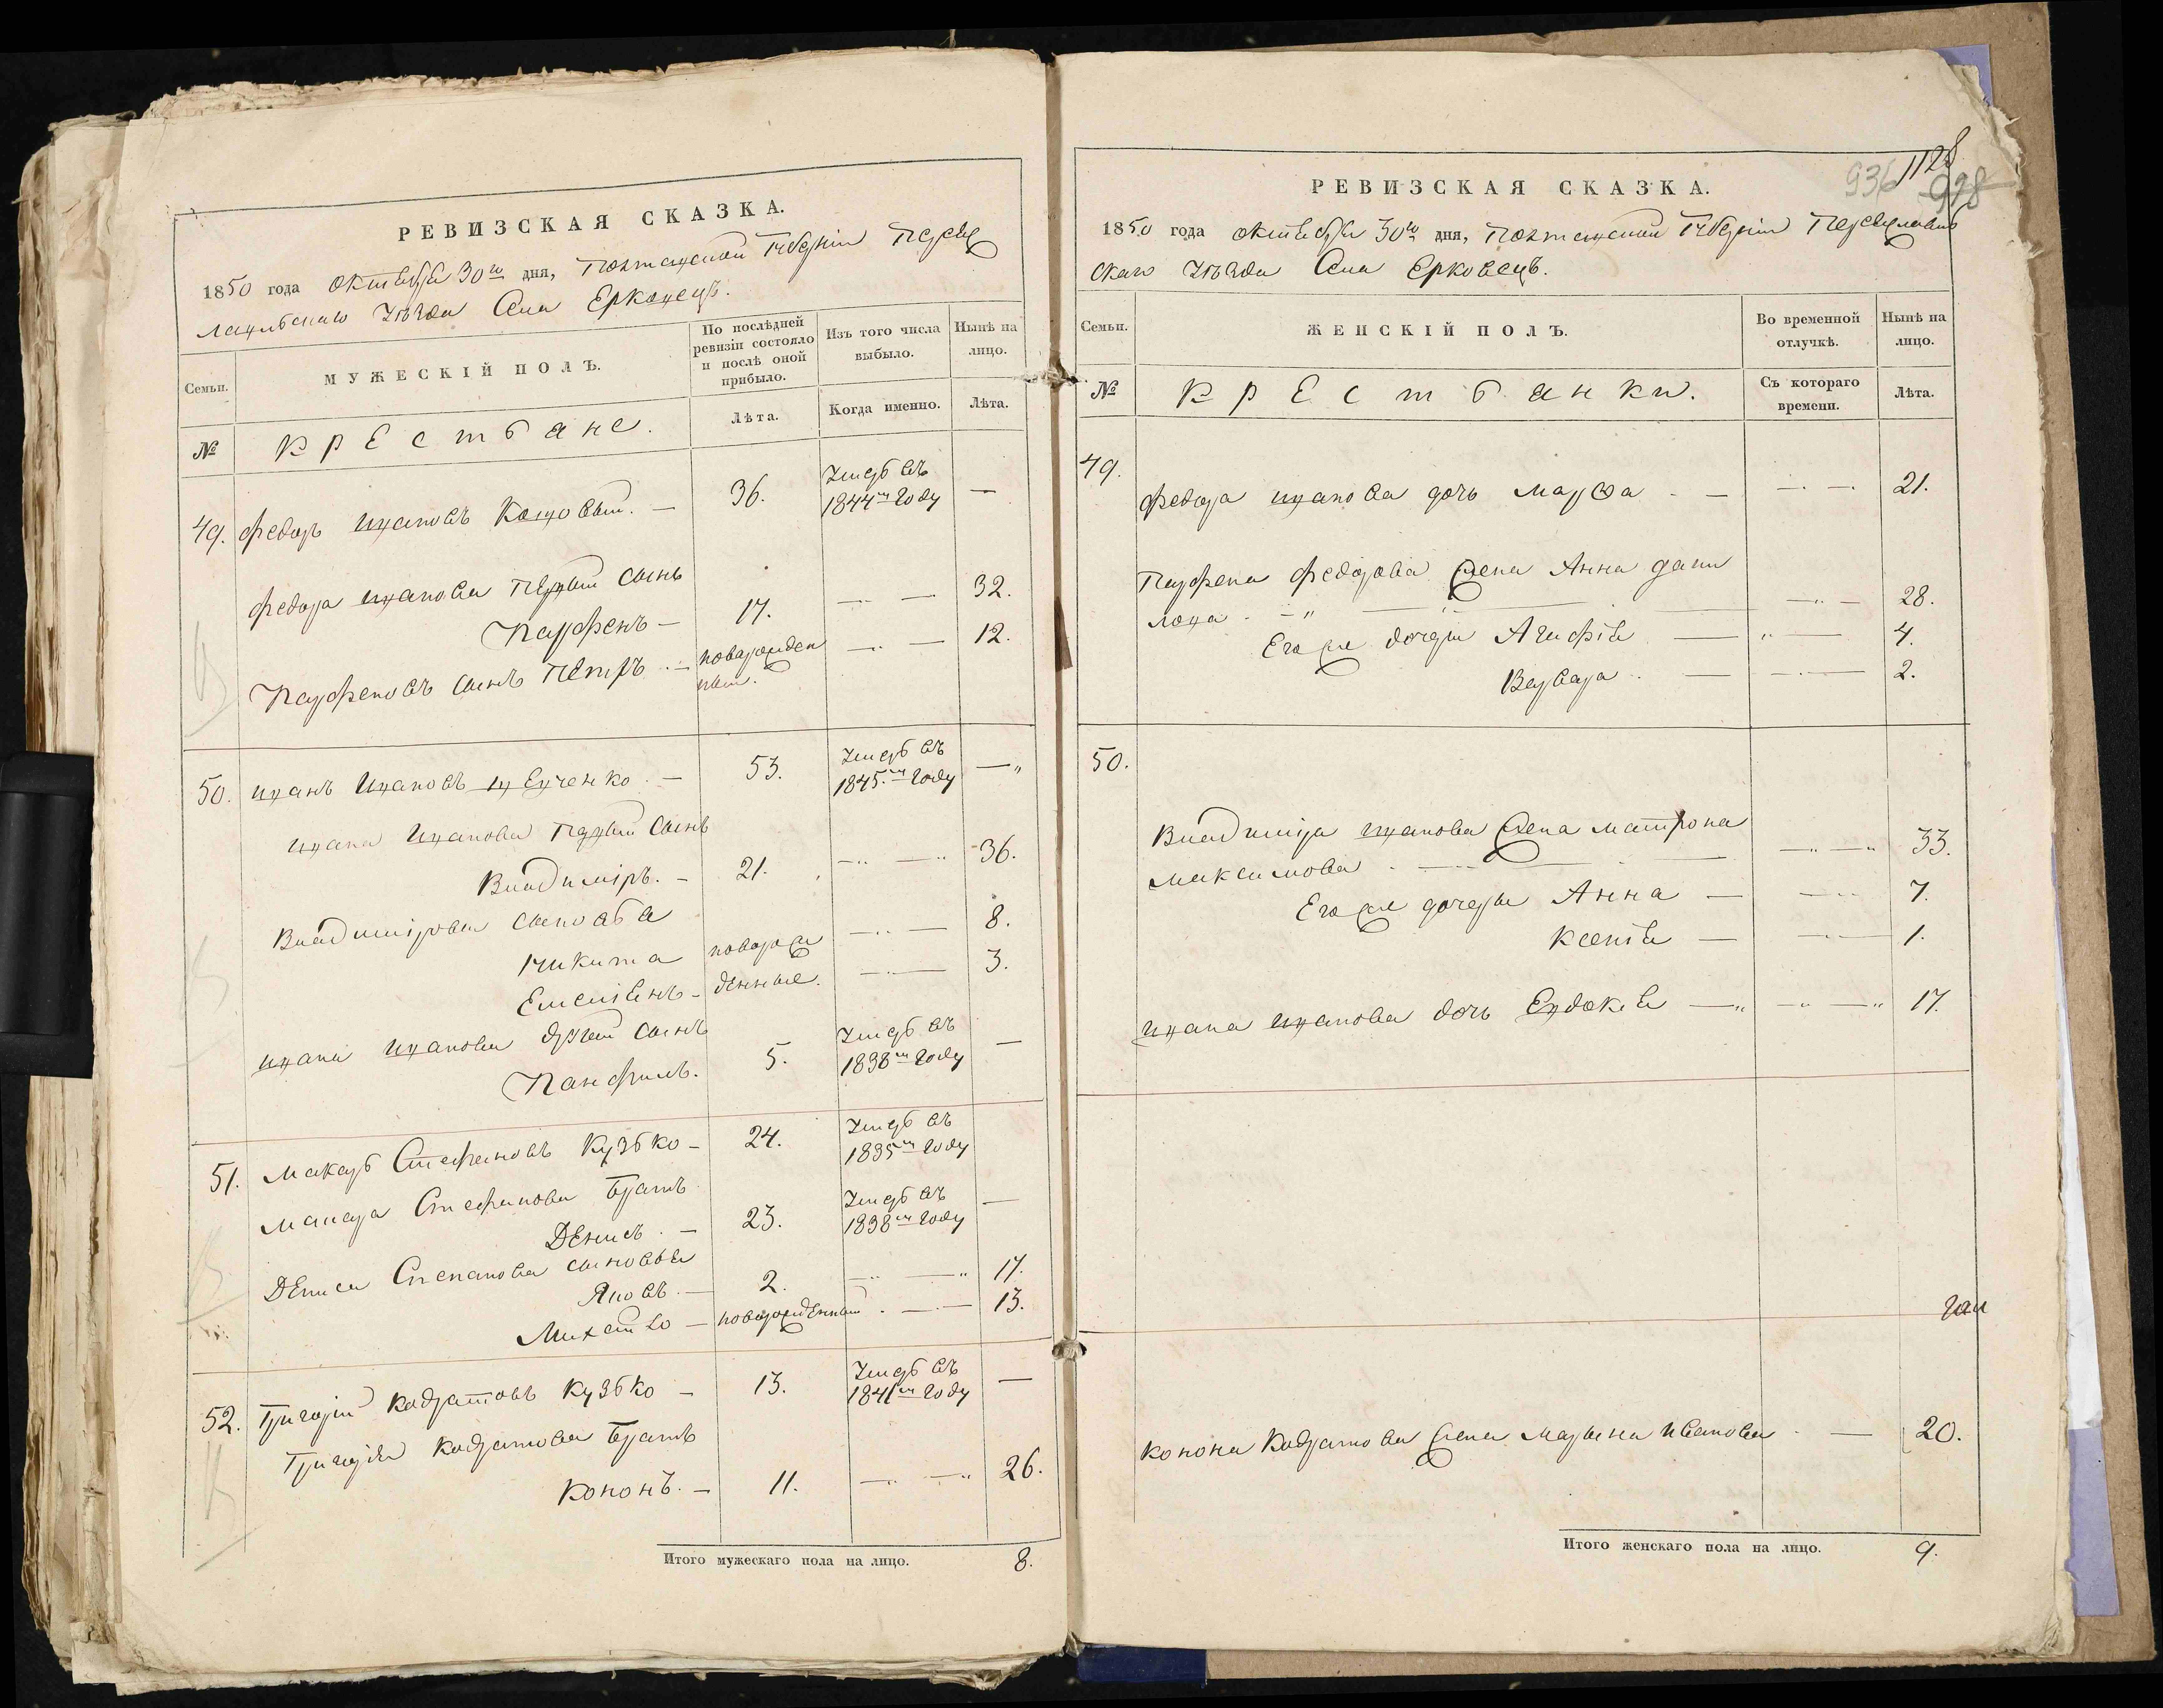 РЕВИЗСКАЯ СКАЗКА.
1850 года октября 30го дня, Полтавской Губерніи Переяс
лавльскаго Уѣзда Села Ерковецъ.
Семьи. МУЖЕСКІЙ ПОЛЪ. По послѣдней ревизіи состояло и послѣ оной прибыло. Изъ того числа выбыло. Нынѣ на лицо.
№ Крестьяне. Лѣта. Когда именно. Лѣта.
49. Федоръ Ивановъ 36. Умеръ въ 1844м Году —
Федора Иванова первый сынъ
Парфенъ — 17. — 32.
Парфеновъ сынъ Петръ — новорожденный. — 12.
50. Иванъ Ивановъ — 53. Умеръ въ 1845.м Году —
Ивана Иванова первый сынъ
Владиміръ. — 21. — 36.
Владимірови сыновья
Никита новорож — 8.
Емеліянъ — денные. — 3.
Ивана Иванова другій сынъ
Панфилъ. 5. Умеръ въ 1838м Году —
51. Макаръ Стефановъ Кузько — 24. Умеръ въ 1835м Году
Макара Стефанова братъ
Денисъ. — 23. Умеръ въ 1838м Году —
Дениса Степанова сыновья
Яковъ. — 2. — 17.
Михайло — новорожденный. — 13.
52. Григорій Кодратовъ Кузько — 13. Умеръ въ 1841м Году —
Григорія Кодратова братъ
Кононъ. — 11. — 26.
Итого мужескаго пола на лицо. 8.
936 1128
998
РЕВИЗСКАЯ СКАЗКА.
1850 года октября 30го дня, Полтавской Губерніи Переяславль
скаго Уѣзда Села Ерковецъ.
Семьи. ЖЕНСКІЙ ПОЛЪ. Во временной отлучкѣ. Нынѣ на лицо.
№ Крестьянки. Съ котораго времени. Лѣта.
49.
Федора Иванова дочь Марфа — 21.
Парфена Федорова жена Анна Дани
лова — 28.
Его же дочери Агафія — 4.
Варвара — 2.
50.
Владиміра Иванова жена Матрона
Максимова — 33.
Его же дочери Анна — 7.
Ксенія — 1.
Ивана Иванова дочь Евдокія — 17.
Конона Кодратова жена Марьяна Иванова — 20.
Итого женскаго пола на лицо. 9.